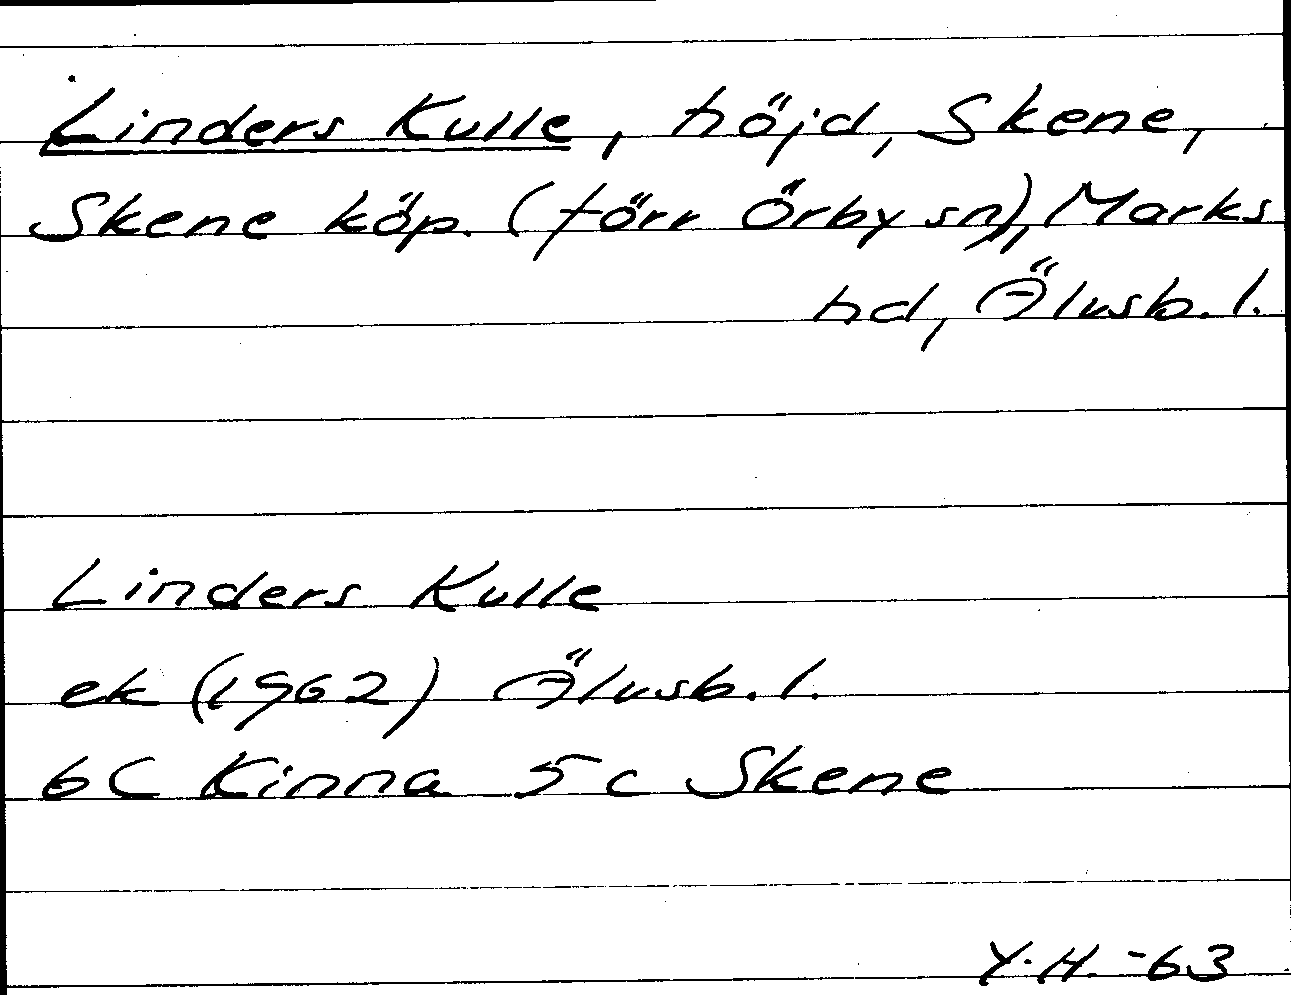 Linders Kulle, höjd, Skene,
Skene köp. (förr Örby sn), Marks
hd, Älvsb. l.
Linders Kulle
ek (1962) Älvsb. l.
6C Kinna 5c Skene
Y.H. -63